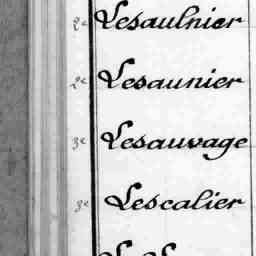 2e Lesaulnier
2e Lesaunier
3e Lesauvage
3e Lescalier